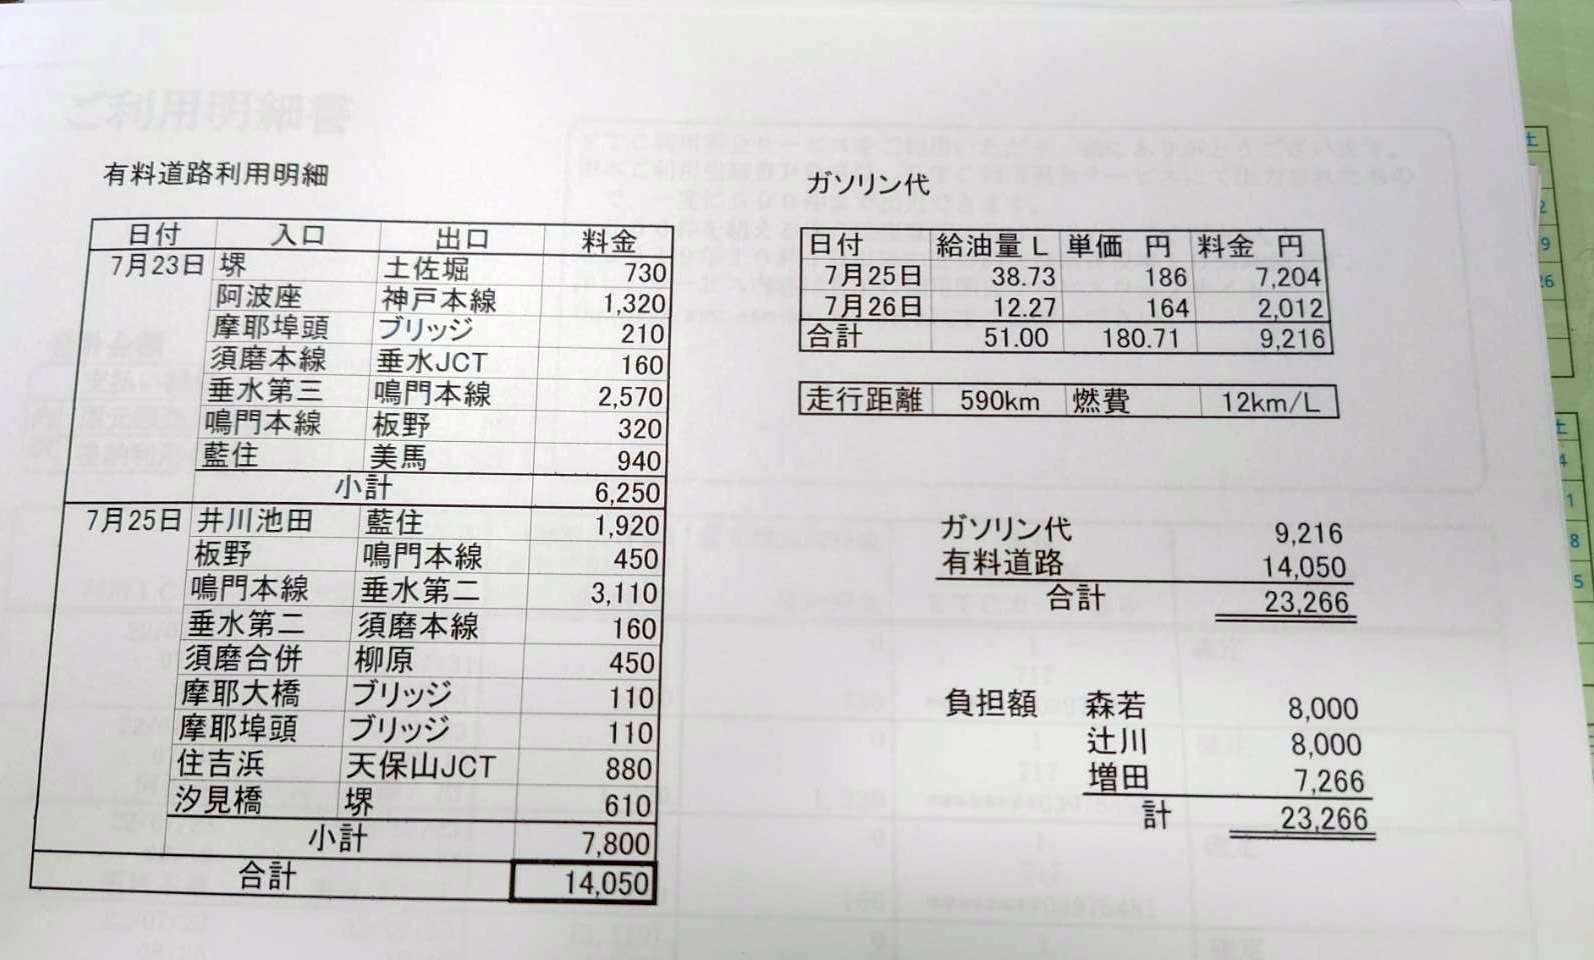 有料道路利用明細
日付 入口 出口 料金
7月23日 堺 土佐堀 730
阿波座 神戸本線 1,320
摩耶埠頭 ブリッジ 210
須磨本線 垂水JCT 160
垂水第三 鳴門本線 2,570
鳴門本線 板野 320
藍住 美馬 940
小計 6,250
7月25日 井川池田 藍住 1,920
板野 鳴門本線 450
鳴門本線 垂水第二 3,110
垂水第二 須磨本線 160
須磨合併 柳原 450
摩耶大橋 ブリッジ 110
摩耶埠頭 ブリッジ 110
住吉浜 天保山JCT 880
汐見橋 堺 610
小計 7,800
合計 14,050
ガソリン代
日付 給油量 L 単価 円 料金 円
7月25日 38.73 186 7,204
7月26日 12.27 164 2,012
合計 51.00 180.71 9,216
走行距離 590km 燃費 12km/L
ガソリン代 9,216
有料道路 14,050
合計 23,266
負担額 森若 8,000
辻川 8,000
増田 7,266
計 23,266
土
2
9
26
土
4
1
8
5